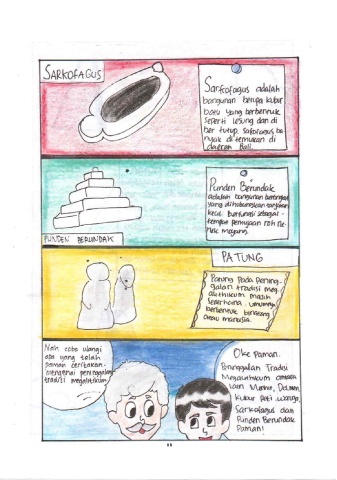 SARKOFAGUS
Sarkofagus adalah
bangunan berupa kubur
batu yang berbentuk
seperti lesung dan di
ber tutup. Sarkofagus ba
nyak ditemukan di
daerah Bali.
PUNDEN BERUNDAK
Punden Berundak
adalah bangunan bertingkat
yang dihubungkan tanjakan
kecil. Berfungsi sebagai -
tempat pemujaan roh ne-
nek moyang.
PATUNG
Patung pada pening-
galan tradisi meg-
alithikum masih
sederhana. Umumnya
berbentuk binatang
atau manusia.
Nah coba ulangi
apa yang telah
paman ceritakan
mengenai peninggalan
tradisi megalitikum
Oke Paman.
Peninggalan Tradisi
Megalithikum antara
lain Menhir, Dolmen,
Kubur Peti, Waruga,
Sarkofagus dan
Punden Berundak
Paman!